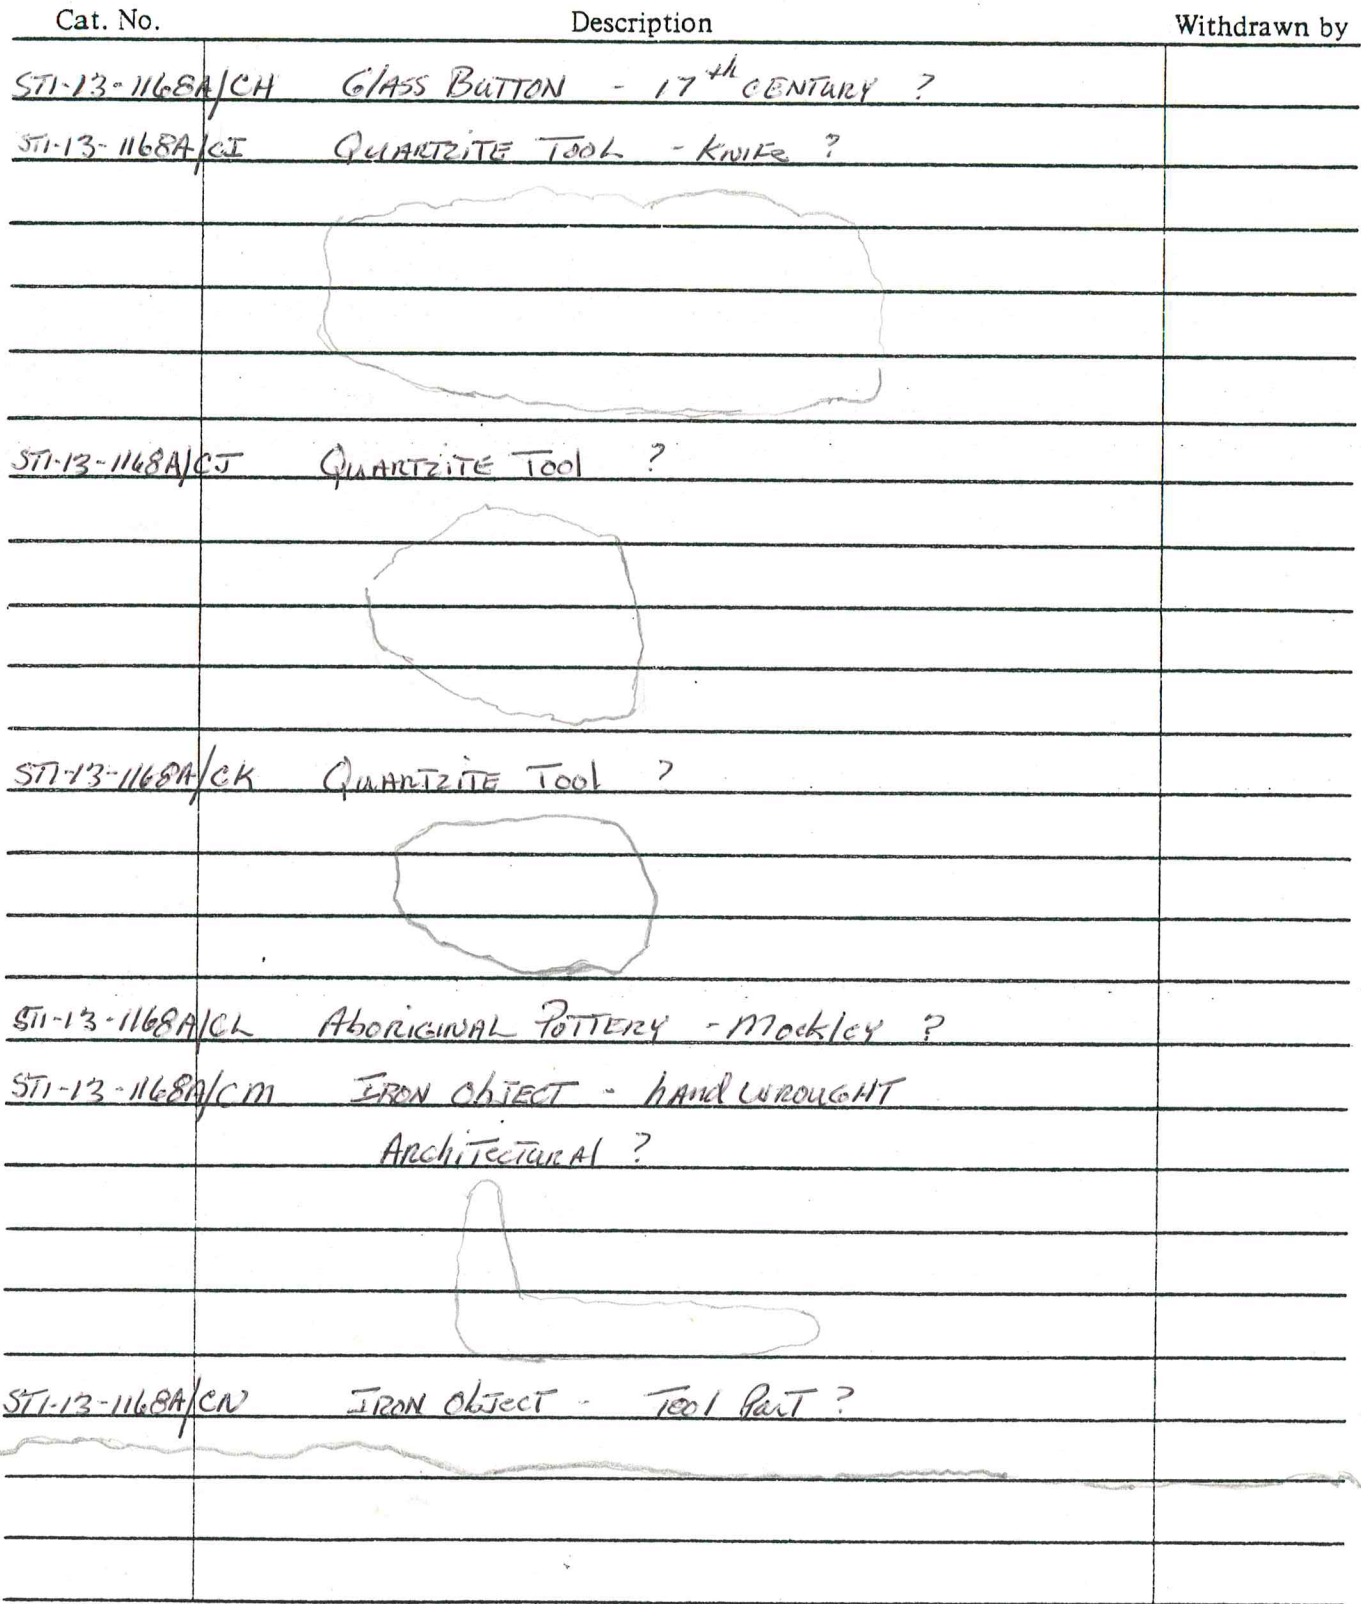 Cat. No. Description Withdrawn by
ST1-13-1168A/CH GlASS BUTTON - 17th CENTURY ?
ST1-13-1168A/CI QUARTZITE TOOL - KNIFE ?
ST1-13-1168A/CJ QUARTZITE Tool ?
ST1-13-1168A/CK QUARTZITE Tool ?
ST1-13-1168A/CL AbORIGINAL POTTERY - Mockley ?
ST1-13-1168A/CM IRON ObJECT - hANd WROUGHT
ARchiTecTURAl ?
ST1-13-1168A/CN IRON ObJecT - Tool ParT ?